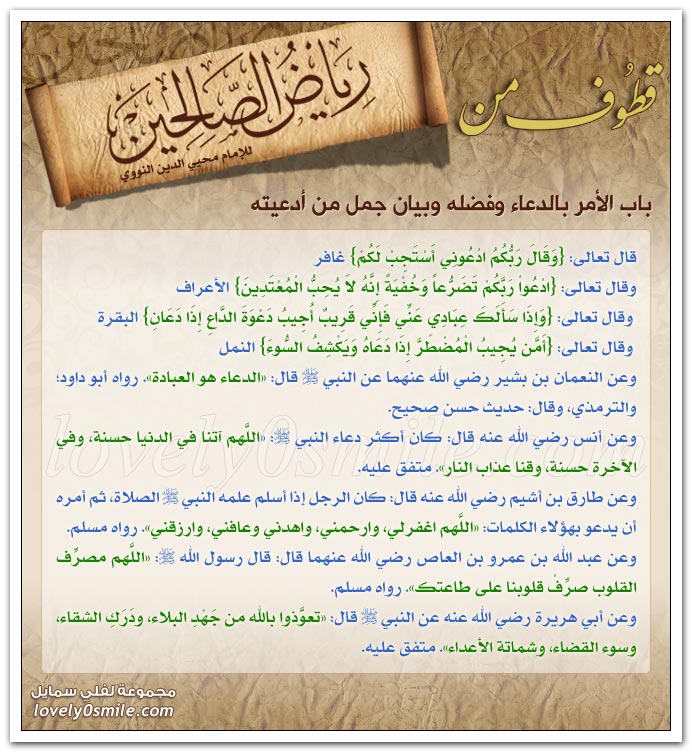 قطوف من
رِيَاضُ الصَّالِحِيْنَ
للإمام محيي الدين النووي
باب الأمر بالدعاء وفضله وبيان جمل من أدعيته
قال تعالى: {وَقَالَ رَبُّكُمُ ادْعُونِي أَسْتَجِبْ لَكُمْ} غافر
وقال تعالى: {ادْعُواْ رَبَّكُمْ تَضَرُّعاً وَخُفْيَةً إِنَّهُ لاَ يُحِبُّ الْمُعْتَدِينَ} الأعراف
وقال تعالى: {وَإِذَا سَأَلَكَ عِبَادِي عَنِّي فَإِنِّي قَرِيبٌ أُجِيبُ دَعْوَةَ الدَّاعِ إِذَا دَعَانِ} البقرة
وقال تعالى: {أَمَّن يُجِيبُ الْمُضْطَرَّ إِذَا دَعَاهُ وَيَكْشِفُ السُّوءَ} النمل
وعن النعمان بن بشير رضي الله عنهما عن النبي ﷺ قال: «الدعاء هو العبادة». رواه أبو داود؛
والترمذي، وقال: حديث حسن صحيح.
وعن أنس رضي الله عنه قال: كان أكثر دعاء النبي ﷺ: «اللَّهم آتنا في الدنيا حسنة، وفي
الآخرة حسنة، وقنا عذاب النار». متفق عليه.
وعن طارق بن أشيم رضي الله عنه قال: كان الرجل إذا أسلم علمه النبي ﷺ الصلاة، ثم أمره
أن يدعو بهؤلاء الكلمات: «اللَّهم اغفرلي، وارحمني، واهدني وعافني، وارزقني». رواه مسلم.
وعن عبد الله بن عمرو بن العاص رضي الله عنهما قال: قال رسول الله ﷺ: «اللَّهم مصرِّف
القلوب صرِّفْ قلوبنا على طاعتك». رواه مسلم.
وعن أبي هريرة رضي الله عنه عن النبي ﷺ قال: «تعوَّذوا بالله من جَهْدِ البلاء، ودَرَكِ الشقاء،
وسوء القضاء، وشماتة الأعداء». متفق عليه.
lovely0smile.com
مجموعة لفلي سمايل
lovely0smile.com